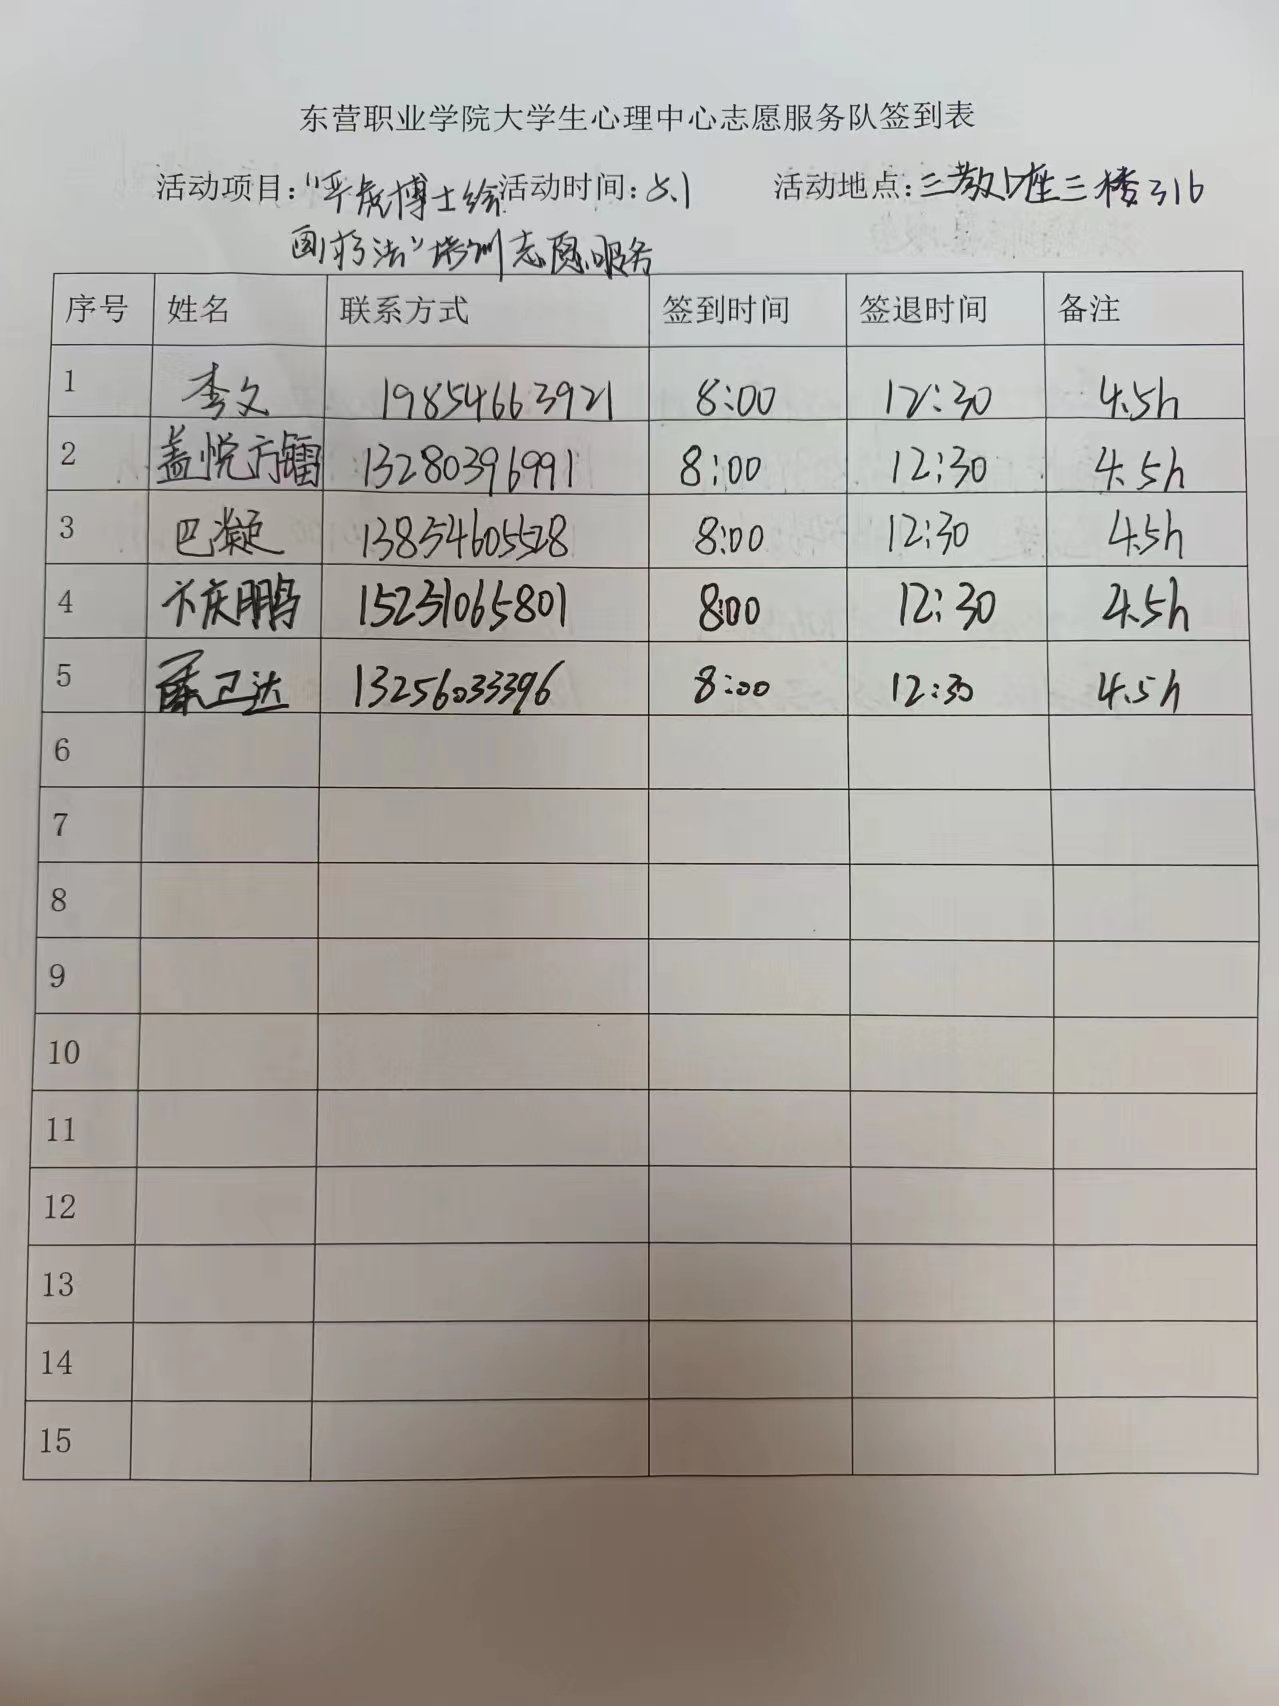 东营职业学院大学生心理中心志愿服务队签到表
活动项目:“平虎博士绘 活动时间:5.1 活动地点:三教座三楼316
画疗法”培训志愿服务
序号 姓名 联系方式 签到时间 签退时间 备注
1 李文 19854663921 8:00 12:30 4.5h
2 盖悦方镭 13280396991 8:00 12:30 4.5h
3 巴凝 13854605528 8:00 12:30 4.5h
4 卞庆鹏 15231065801 8:00 12:30 4.5h
5 卫达 13256033396 8:00 12:30 4.5h
6
7
8
9
10
11
12
13
14
15